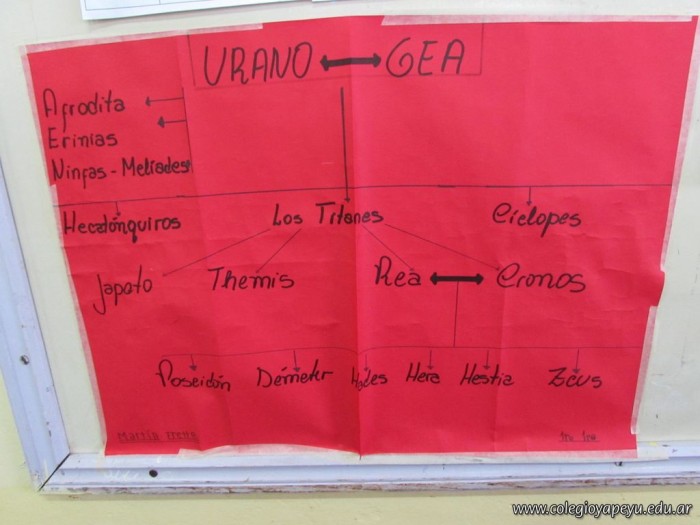 URANO GEA
Afrodita
Erinias
Ninfas - Meliades
Hecatónquiros Los Titanes Cíclopes
Japeto Themis Rea Cronos
Poseidón Démeter Hades Hera Hestia Zeus
www.colegioyapeyu.edu.ar